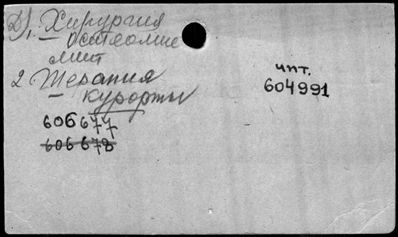 2), Хирургия
— Остеомие
лит
2 Терапия
— курорты
чит.
604991
606677
606678